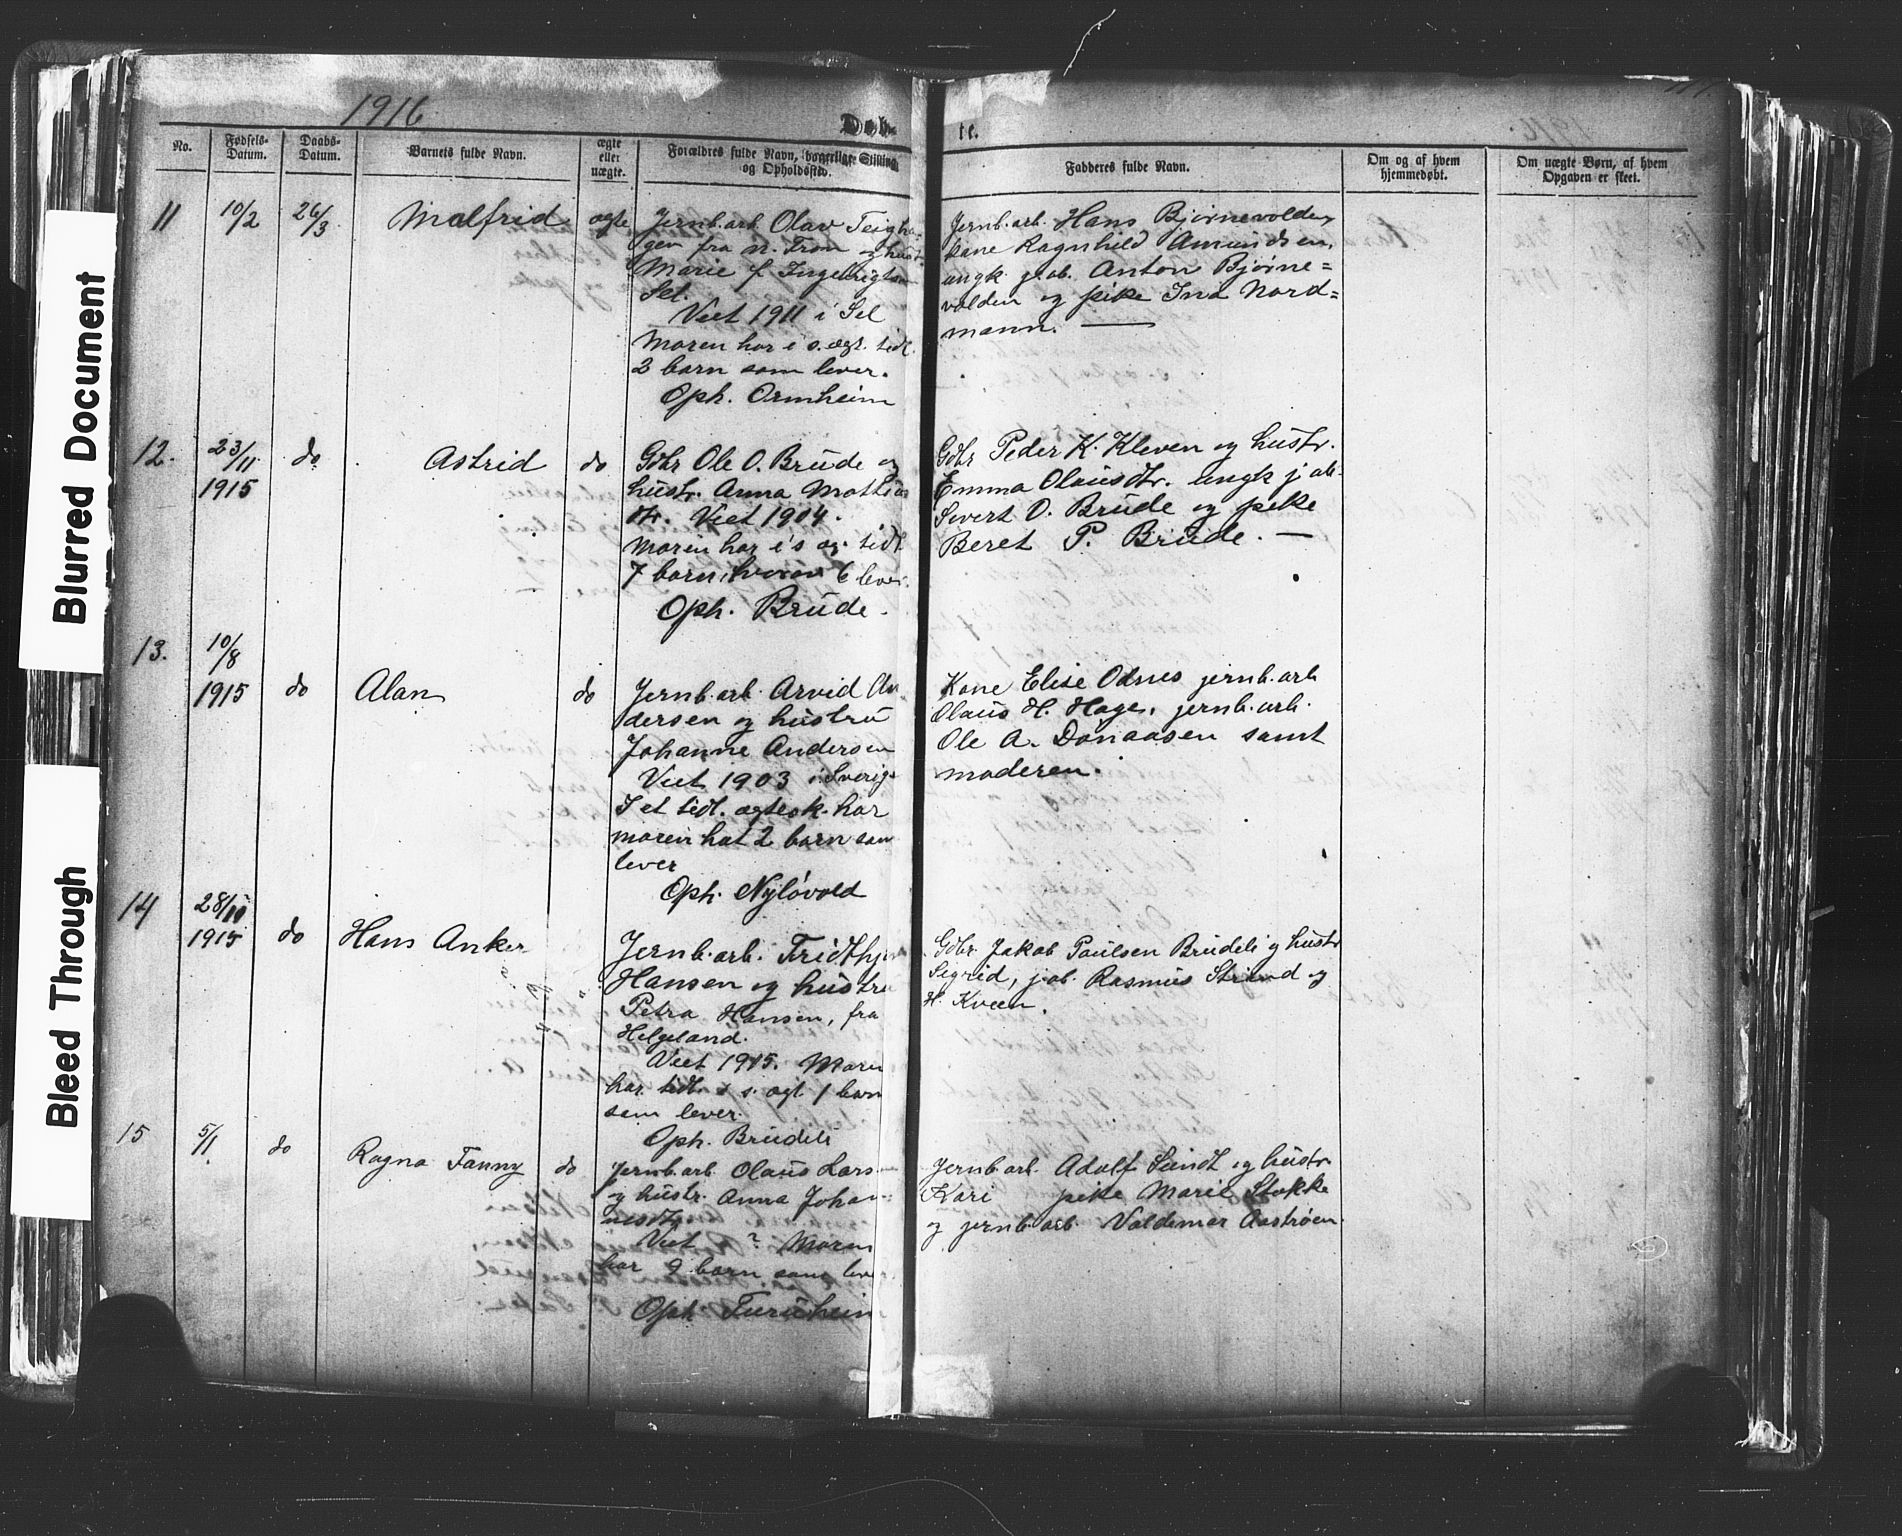 1916
Døb-
te.
No.
Fødsels-
Datum.
Daabs-
Datum.
Barnets fulde Navn.
ægte
eller
uægte.
Forældres fulde Navn, borgerlige Stilling
og Opholdssted.
Fadderes fulde Navn.
Om og af hvem
hjemmedøbt.
Om uægte Børn, af hvem
Opgaven er skeet.
11
10/2
26/3
Malfrid
ægte
Jernb.arb. Olav Teigha-
gen fra N. From og hust.
Marie f. Ingebrigtsen
Sel.
Viet 1911 i Sel
Moren har i s. ægt. tidl.
2 barn som lever.
Oph. Ormheim
Jernb.arb. Hans Bjørnevolden,
kone Ragnhild Amundsen,
ungk. g.ab. Anton Bjørne=
volden og pike Ina Nord=
mann. —
12.
23/11
1915
do
Astrid
do
Gdbr Ole O. Brude og
hustr. Anna Mathias
dtr. Viet 1904.
Moren har i s æg. tidl
7 barn, hvorav 6 lever.
Oph. Brude.
Gdbr Peder K. Kleven og hustr.
Emma Olausdtr. ungk j.ab.
Sivert O. Brude og pike
Beret P. Brude. —
13.
10/8
1915
do
Alan
do
Jernb.arb. Arvid An-
dersen og hustru
Johanne Andersen
Viet 1903 i Sverig
I et tidl. ægtesk. har
moren hat 2 barn som
lever
Oph. Nyløvold
Kone Elise Odnes jernb.arb
Olaus H. Hage, jernb.arb.
Ole A. Donaasen samt
moderen.
14
28/10
1915
do
Hans Anker
"
Jernb.arb. Fridthjov
Hansen og hustru
Petra Hansen, fra
Helgeland.
Viet 1915. Moren
har tidl. i s. ægt. 1 barn
som lever.
Oph. Brudeli
Gdbr Jakob Paulsen Brudeli og hustr
Sigrid, j.ab. Rasmus Strand og
H. Kveen.
15
5/1
do
Ragna Fanny
do
Jernb.arb. Olaus Lars-
og hustr. Anna Johan-
nesdtr.
Viet ? Moren
har 9 barn som lever
Oph. Turuheim
Jernb.arb. Adolf Sundt og hustr
Kari pike Marie Stokke
og jernb.arb. Valdemar Aastrøen.
Blurred Document
Bleed Through